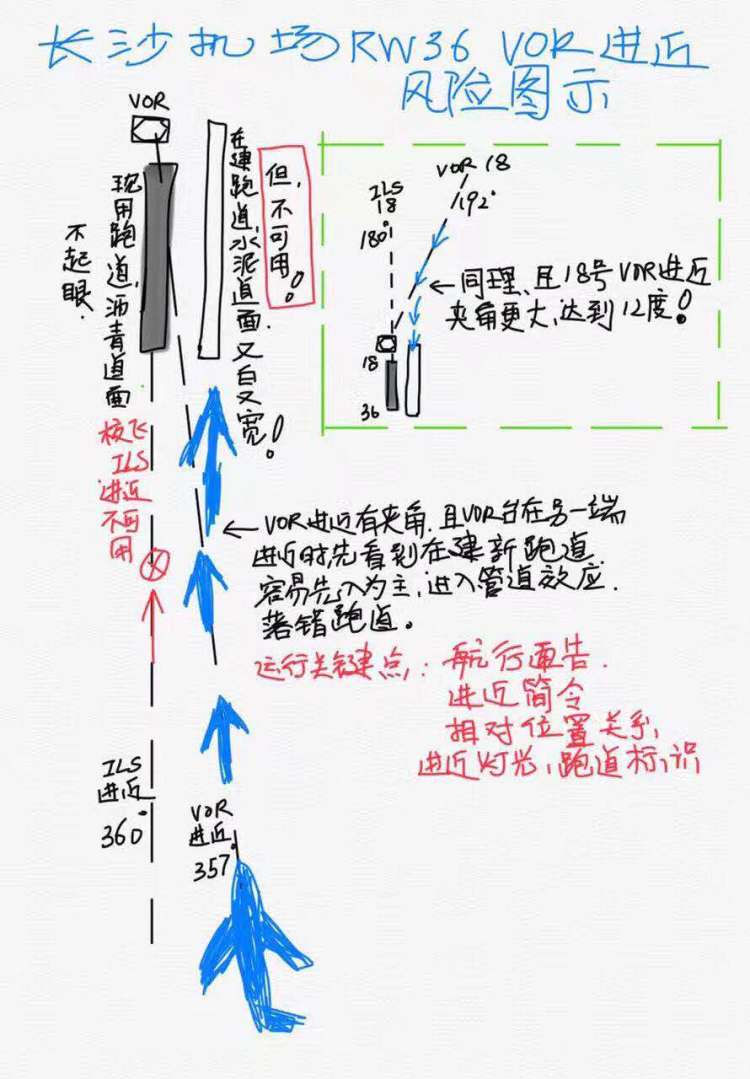 长沙机场RW36 VOR进近
风险图示
VOR
现用跑道,沥青道面
不起眼.
在建跑道,水泥道面.又白又宽!
但,不可用!
VOR 18
192°
ILS
18
180°
←同理,且18号VOR进近
夹角更大,达到12度!
18
36
校飞
ILS
进近
不可
用
←VOR进近有夹角.且VOR台在另一端
进近时先看到在建新跑道.
容易先入为主,进入管道效应.
落错跑道。
运行关键点: 航行通告.
进近简令
相对位置关系,
进近灯光,跑道标识
ILS
进近
360°
VOR
进近
357°